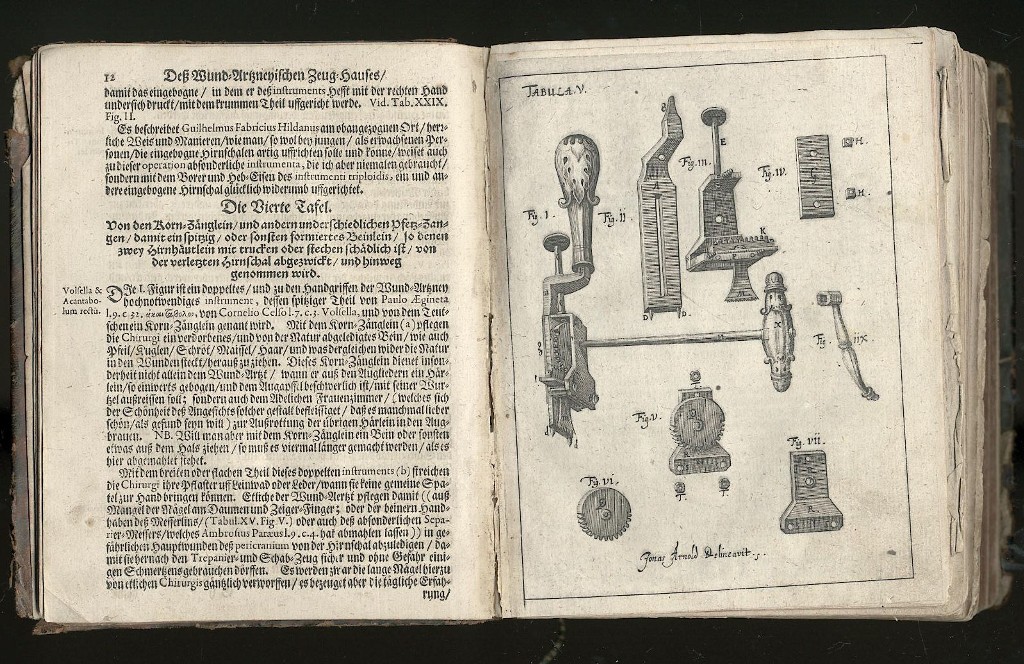 12 Deß Wund-Artzneyischen Zeug-Hauses/
damit das eingebogne / in dem er deß instruments Hefft mit der rechten Hand
undersich druckt/mit dem krummen Theil uffgericht werde. Vid. Tab. XXIX.
Fig. II.
Es beschreibet Guilhelmus Fabricius Hildanus am obangezognen Ort/ herr-
liche Weis und Manieren/wie man/ so wol bey jungen / als erwachsenen Per-
sonen/die eingebogne Hirnschalen artig uffrichten solle und könne/weiset auch
zu dieser operation absonderliche instrumenta, die ich aber niemalen gebraucht/
sondern mit dem Borer und Heb-Eisen des instrumenti triploidis, ein und an-
dere eingebogene Hirnschal glücklich widerumb uffgerichtet.
Die Vierte Tafel.
Von den Korn-Zänglein/ und andern underschiedlichen Pfetz-Zan-
gen/ damit ein spitzig / oder sonsten formiertes Beinlein / so denen
zwey Hirnhäutlein mit trucken oder stechen schädlich ist / von
der verletzten Hirnschal abgezwickt / und hinweg
genommen wird.
Volsella &
Acantabo-
lum rectū.
Die I. Figur ist ein doppeltes/ und zu den Handgriffen der Wund-Artzney
hochnotwendiges instrument, dessen spitziger Theil von Paulo Ægineta
l. 9. c. 32. von Cornelio Celso l. 7. c. 3. Volsella, und von dem Teut-
schen ein Korn-Zänglein genant wird. Mit dem Korn-Zänglein (a) pflegen
die Chirurgi ein verdorbenes/und von der Natur abgeledigtes Bein/ wie auch
Pfeil/Kuglen/Schrot/Maissel/Haar/und was dergleichen wider die Natur
in den Wunden steckt/heraus zu ziehen. Dieses Korn-Zänglein dienet inson-
derheit nicht allein dem Wund-Artzt / wann er auß den Augliedern ein Här-
lein/so einwerts gebogen/und dem Augapffel beschwerlich ist/mit seiner Wur-
tzel außreissen soll; sondern auch dem Adelichen Frauenzimmer/ (welches sich
der Schönheit deß Angesichts solcher gestalt befleissiget / daß es manchmal lieber
schön/als gesund seyn will) zur Außrottung der übrigen Härlein in den Aug-
brauen. NB. Will man aber mit dem Korn-Zänglein ein Bein oder sonsten
etwas auß dem Hals ziehen / so muß es viermal länger gemacht werden / als es
hier abgemahlet stehet.
Mit dem breiten oder flachen Theil dieses doppelten instruments (b) streichen
die Chirurgi ihre Pflaster uff Leinwad oder Leder/wann sie keine gemeine Spa-
tel zur Hand bringen können. Etliche der Wund-Aertzt pflegen damit ((auß
Mangel der Nägel am Daumen und Zeiger-Finger; oder der beinern Hand-
haben deß Messerlins/(Tabul. XV. Fig V.) oder auch deß absonderlichen Sepa-
rier-Messers/welches Ambrosius Paræus l. 9. c. 4. hat abmahlen lassen)) in ge-
fährlichen Hauptwunden deß pericranium von der Hirnschal abzuledigen / da-
mit sie hernach den Trepanier-und Schab-Zeug sicher und ohne Gefahr eini-
gen Schmertzens gebrauchen dörffen. Es werden zwar die lange Nägel hierzu
von etlichen Chirurgis gäntzlich verworffen / es bezeuget aber die tägliche Erfah-
rung/
TABULA. V.
Fig. I.
Fig. ii
A
D D
Fig. iii.
E
K
Fig. iv.
G
H.
H.
X
Fig. iiX
Fig. V.
T. T.
Fig. vi.
Fig. vii.
R
Jonas Arnold Delineavit.